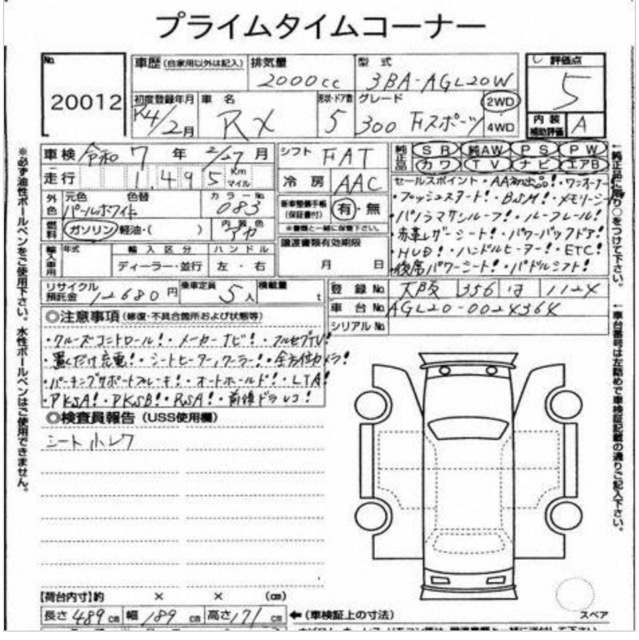 プライムタイムコーナー
No. 20012
車歴 (自家用以外は記入) 排気量 2000cc 型式 3BA-AGL20W
評価点 5
初度登録年月 R4/2月 車名 RX 形状・ドア数 5 グレード 300 Fスポーツ 2WD 4WD
内装補助評価 A
車検 令和 7 年 2/27 月 シフト FAT
純正品 SR 純AW PS PW
カワ TV ナビ エアB
走行 1,495 Km マイル 冷房 AAC
セールスポイント・AA初出品!・ワンオーナー
外色 元色 パールホワイト 色替 カラーNo 083
新車整備手帳(保証書付) 有・無
※書類と一緒に保管下さい。
・プッシュスタート!・BSM!・メモリーシート
・パノラマサンルーフ!・ルーフレール!
燃料 ガソリン・軽油・( ) 内装色 アカ
譲渡書類有効期限
月 日
・赤革レザーシート!・パワーバックドア!
・HUD!・ハンドルヒーター!・ETC!
・後席パワーシート!・パドルシフト!
輸入車用 年式 輸入区分 ハンドル
ディーラー・並行 左・右
リサイクル預託金 12680円 乗車定員 5人 積載量 t
登録No 大阪 356 は 1124
車台No AGL20-0024364
シリアルNo
◎注意事項 (修復・不具合箇所および状態等)
・クルーズコントロール!・メーカーナビ!・フルセグTV!
・置くだけ充電!・シートヒーター,クーラー!・全方位カメラ!
・パーキングサポートブレーキ!・オートホールド!・LTA!
・PKSA!・PKSB!・RSA!・前後ドラレコ!
◎検査員報告 (USS使用欄)
シート小レワ
【荷台内寸】約 × × (cm)
長さ 489 cm 幅 189 cm 高さ 171 cm ←(車検証上の寸法)
スペア
※必ず油性ボールペンをご使用下さい。水性ボールペンはご使用できません。
↑純正品に限り○をつけて下さい。
↑車台番号は左詰めで車検証記載の通りご記入下さい。